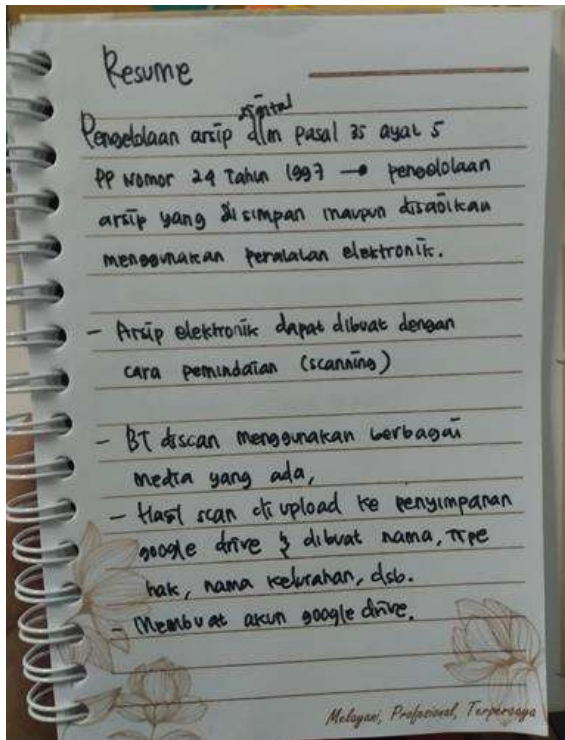 Resume
digital
Pengelolaan arsip dlm pasal 35 ayat 5
PP Nomor 24 Tahun 1997 → pengelolaan
arsip yang disimpan maupun disajikan
menggunakan peralatan elektronik.
- Arsip elektronik dapat dibuat dengan
cara pemindaian (scanning)
- BT discan menggunakan berbagai
media yang ada,
- Hasil scan di upload ke penyimpanan
google drive & dibuat nama, tipe
hak, nama kelurahan, dsb.
- Membuat akun google drive.
Melayani, Profesional, Terpercaya